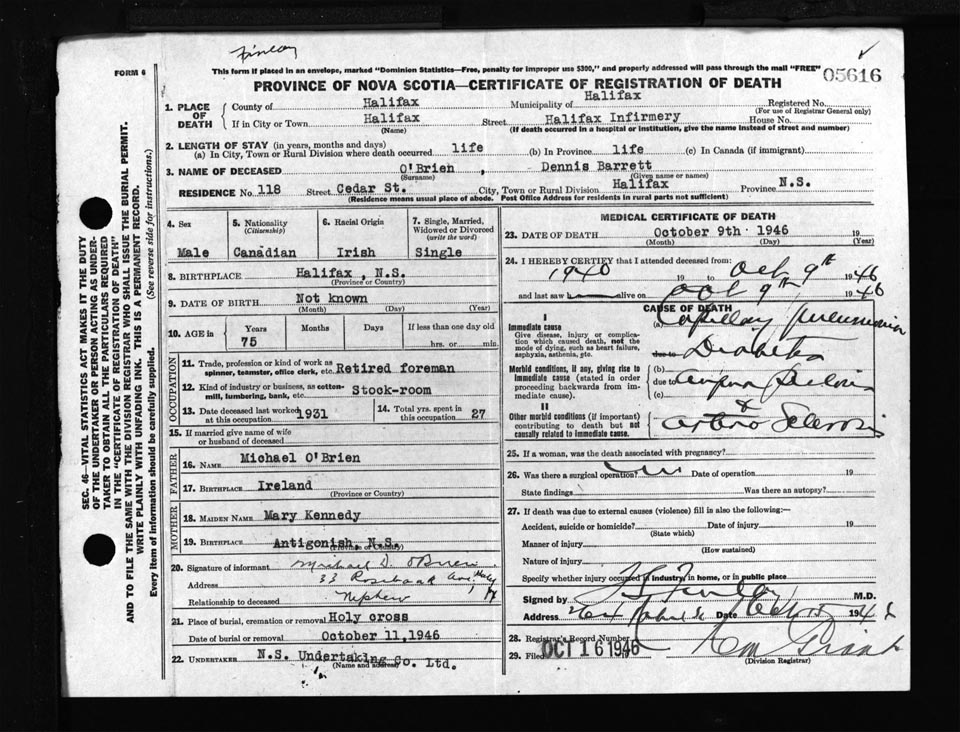 Finlay
FORM 6
This form if placed in an envelope, marked "Dominion Statistics—Free, penalty for improper use $300," and properly addressed will pass through the mail "FREE"
05616
PROVINCE OF NOVA SCOTIA—CERTIFICATE OF REGISTRATION OF DEATH
1. PLACE OF DEATH
County of Halifax Municipality of Halifax Registered No.
(For use of Registrar General only)
If in City or Town Halifax Street Halifax Infirmery House No.
(Name) (If death occurred in a hospital or institution, give the name instead of street and number)
2. LENGTH OF STAY (in years, months and days)
(a) In City, Town or Rural Division where death occurred life (b) In Province life (c) In Canada (if immigrant)
3. NAME OF DECEASED O'Brien , Dennis Barrett
(Surname) (Given name or names)
RESIDENCE No 118 Street Cedar St. City, Town or Rural Division Halifax Province N.S.
(Residence means usual place of abode. Post Office Address for residents in rural parts not sufficient)
4. Sex
Male
5. Nationality
(Citizenship)
Canadian
6. Racial Origin
Irish
7. Single, Married, Widowed or Divorced
(write the word)
Single
8. BIRTHPLACE Halifax , N.S.
(Province or Country)
9. DATE OF BIRTH Not known
(Month) (Day) (Year)
10. AGE in
Years Months Days If less than one day old
75 hrs. or min.
OCCUPATION
11. Trade, profession or kind of work as spinner, teamster, office clerk, etc. Retired foreman
12. Kind of industry or business, as cotton-mill, lumbering, bank, etc. Stock-room
13. Date deceased last worked at this occupation 1931
14. Total yrs. spent in this occupation 27
15. If married give name of wife or husband of deceased
FATHER
16. NAME Michael O'Brien
17. BIRTHPLACE Ireland
(Province or Country)
MOTHER
18. MAIDEN NAME Mary Kennedy
19. BIRTHPLACE Antigonish, N.S.
(Province or Country)
20. Signature of informant Michael D. O'Brien
Address 33 Rosebank Ave.
Relationship to deceased Nephew
21. Place of burial, cremation or removal Holy cross
Date of burial or removal October 11,1946
22. UNDERTAKER N.S. Undertaking Co. Ltd.
(Name and address)
MEDICAL CERTIFICATE OF DEATH
23. DATE OF DEATH October 9th 1946 19
(Month) (Day)
24. I HEREBY CERTIFY that I attended deceased from:
1940 19 to Oct 9th 1946
and last saw h alive on Oct 9th 1946
CAUSE OF DEATH
I
Immediate cause
Give disease, injury or complication which caused death, not the mode of dying, such as heart failure, asphyxia, asthenia, etc.
(a) Capillary pneumonia
due to Diabetes
Morbid conditions, if any, giving rise to immediate cause (stated in order proceeding backwards from immediate cause).
(b)
due to
(c)
II
Other morbid conditions (if important) contributing to death but not causally related to immediate cause.
& Arthro Sclerosis
25. If a woman, was the death associated with pregnancy?
26. Was there a surgical operation? Date of operation 19
State findings Was there an autopsy?
27. If death was due to external causes (violence) fill in also the following:—
Accident, suicide or homicide? Date of injury 19
(State which)
Manner of injury
(How sustained)
Nature of injury
Specify whether injury occurred in industry, in home, or in public place
Signed by Finlay M.D.
Address Date Oct 15 194
28. Registrar's Record Number
29. Filed OCT 16 1946
(Division Registrar)
SEC. 46—VITAL STATISTICS ACT MAKES IT THE DUTY
OF THE UNDERTAKER OR PERSON ACTING AS UNDER-
TAKER TO OBTAIN ALL THE PARTICULARS REQUIRED
IN THE "CERTIFICATE OF REGISTRATION OF DEATH"
AND TO FILE THE SAME WITH THE DIVISION REGISTRAR WHO SHALL ISSUE THE BURIAL PERMIT.
WRITE PLAINLY WITH UNFADING INK. THIS IS A PERMANENT RECORD.
Every item of information should be carefully supplied. (See reverse side for instructions.)